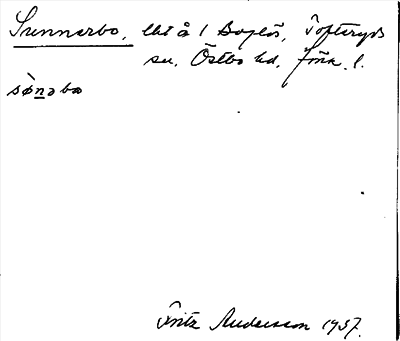 Sunnerbo, lht å 1 Boglös, Tofteryds
sn. Östbo hd. Jönk. l.
sønəbo
Fritz Andersson 1937.